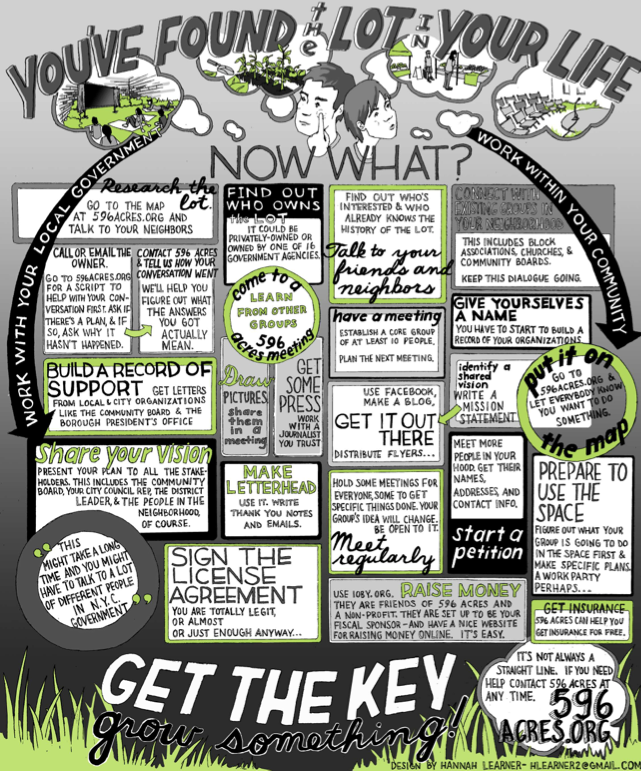 YOU'VE FOUND the LOT IN YOUR LIFE
NOW WHAT?
WORK WITH YOUR LOCAL GOVERNMENT
WORK WITHIN YOUR COMMUNITY
Research the lot.
GO TO THE MAP
AT 596ACRES.ORG AND
TALK TO YOUR NEIGHBORS
FIND OUT
WHO OWNS
THE LOT
IT COULD BE
PRIVATELY-OWNED OR
OWNED BY ONE OF 16
GOVERNMENT AGENCIES.
FIND OUT WHO'S
INTERESTED & WHO
ALREADY KNOWS THE
HISTORY OF THE LOT.
Talk to your
friends and
neighbors
CONNECT WITH
EXISTING GROUPS IN
YOUR NEIGHBORHOOD
THIS INCLUDES BLOCK
ASSOCIATIONS, CHURCHES, &
COMMUNITY BOARDS.
KEEP THIS DIALOGUE GOING.
CALL OR EMAIL THE
OWNER.
GO TO 596ACRES.ORG
FOR A SCRIPT TO
HELP WITH YOUR CON-
VERSATION FIRST. ASK IF
THERE'S A PLAN, & IF
SO, ASK WHY IT
HASN'T HAPPENED.
CONTACT 596 ACRES
& TELL US HOW YOUR
CONVERSATION WENT
WE'LL HELP YOU
FIGURE OUT WHAT
THE ANSWERS
YOU GOT
ACTUALLY
MEAN.
come to a
LEARN
FROM OTHER
GROUPS
596
acres meeting
have a meeting
ESTABLISH A CORE GROUP
OF AT LEAST 10 PEOPLE.
PLAN THE NEXT MEETING.
GIVE YOURSELVES
A NAME
YOU HAVE TO START TO BUILD A
RECORD OF YOUR ORGANIZATIONS
BUILD A RECORD OF
SUPPORT GET LETTERS
FROM LOCAL & CITY ORGANIZATIONS
LIKE THE COMMUNITY BOARD & THE
BOROUGH PRESIDENT'S OFFICE
Draw
PICTURES,
share
them
in a
meeting
GET
SOME
PRESS
WORK
WITH A
JOURNALIST
YOU TRUST
USE FACEBOOK,
MAKE A BLOG,
GET IT OUT
THERE
DISTRIBUTE FLYERS...
identify a
shared
vision
WRITE A
MISSION
STATEMENT
put it on
GO TO
596ACRES.ORG &
LET EVERYBODY KNOW
YOU WANT TO DO
SOMETHING.
the map
Share your Vision
PRESENT YOUR PLAN TO ALL THE STAKE-
HOLDERS. THIS INCLUDES THE COMMUNITY
BOARD, YOUR CITY COUNCIL REP, THE DISTRICT
LEADER, & THE PEOPLE IN THE
NEIGHBORHOOD,
OF COURSE.
MAKE
LETTERHEAD
USE IT. WRITE
THANK YOU NOTES
AND EMAILS.
HOLD SOME MEETINGS FOR
EVERYONE, SOME TO GET
SPECIFIC THINGS DONE. YOUR
GROUP'S IDEA WILL CHANGE.
BE OPEN TO IT.
Meet
regularly
MEET MORE
PEOPLE IN YOUR
HOOD. GET THEIR
NAMES,
ADDRESSES, AND
CONTACT INFO.
start a
petition
PREPARE TO
USE THE
SPACE
FIGURE OUT WHAT YOUR
GROUP IS GOING TO DO
IN THE SPACE FIRST &
MAKE SPECIFIC PLANS.
A WORK PARTY
PERHAPS...
"THIS
MIGHT TAKE A LONG
TIME AND YOU MIGHT
HAVE TO TALK TO A LOT
OF DIFFERENT PEOPLE
IN N.Y.C.
GOVERNMENT"
SIGN THE
LICENSE
AGREEMENT
YOU ARE TOTALLY LEGIT,
OR ALMOST
OR JUST ENOUGH ANYWAY...
USE IOBY.ORG. RAISE MONEY
THEY ARE FRIENDS OF 596 ACRES AND
A NON-PROFIT. THEY ARE SET UP TO BE YOUR
FISCAL SPONSOR-AND HAVE A NICE WEBSITE
FOR RAISING MONEY ONLINE. IT'S EASY.
GET INSURANCE
596 ACRES CAN HELP YOU
GET INSURANCE FOR FREE.
GET THE KEY
grow something!
IT'S NOT ALWAYS A
STRAIGHT LINE. IF YOU NEED
HELP CONTACT 596 ACRES AT
ANY TIME.
596
ACRES.ORG
DESIGN BY HANNAH LEARNER- HLEARNER2@GMAIL.COM